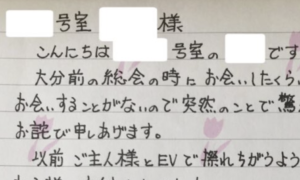 号室 様
こんにちは 号室の です
大分前の総会の時にお会いしたくら
お会いすることがないので突然のことで驚
お詫び申しあげます。
以前 ご主人様とEVで擦れちがうよう